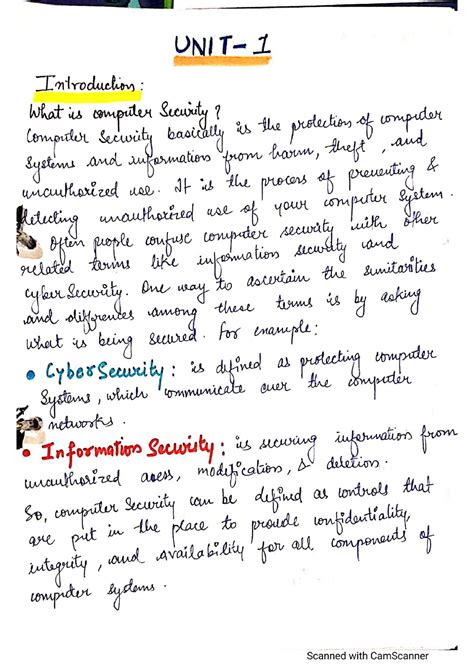 UNIT-1
Introduction:
What is computer Security?
Computer Security basically is the protection of computer
Systems and information from harm, theft, and
unauthorized use. It is the process of preventing &
detecting unauthorized use of your computer system.
Often people confuse computer security with other
related terms like information security and
cyber Security. One way to ascertain the similarities
and differences among these terms is by asking
what is being secured. For example:
• CyberSecurity: is defined as protecting computer
Systems, which communicate over the computer
networks.
• Information Security: is securing information from
unauthorized access, modification, & deletion.
So, computer Security can be defined as controls that
are put in the place to provide confidentiality,
integrity, and availability for all components of
computer systems.
Scanned with CamScanner